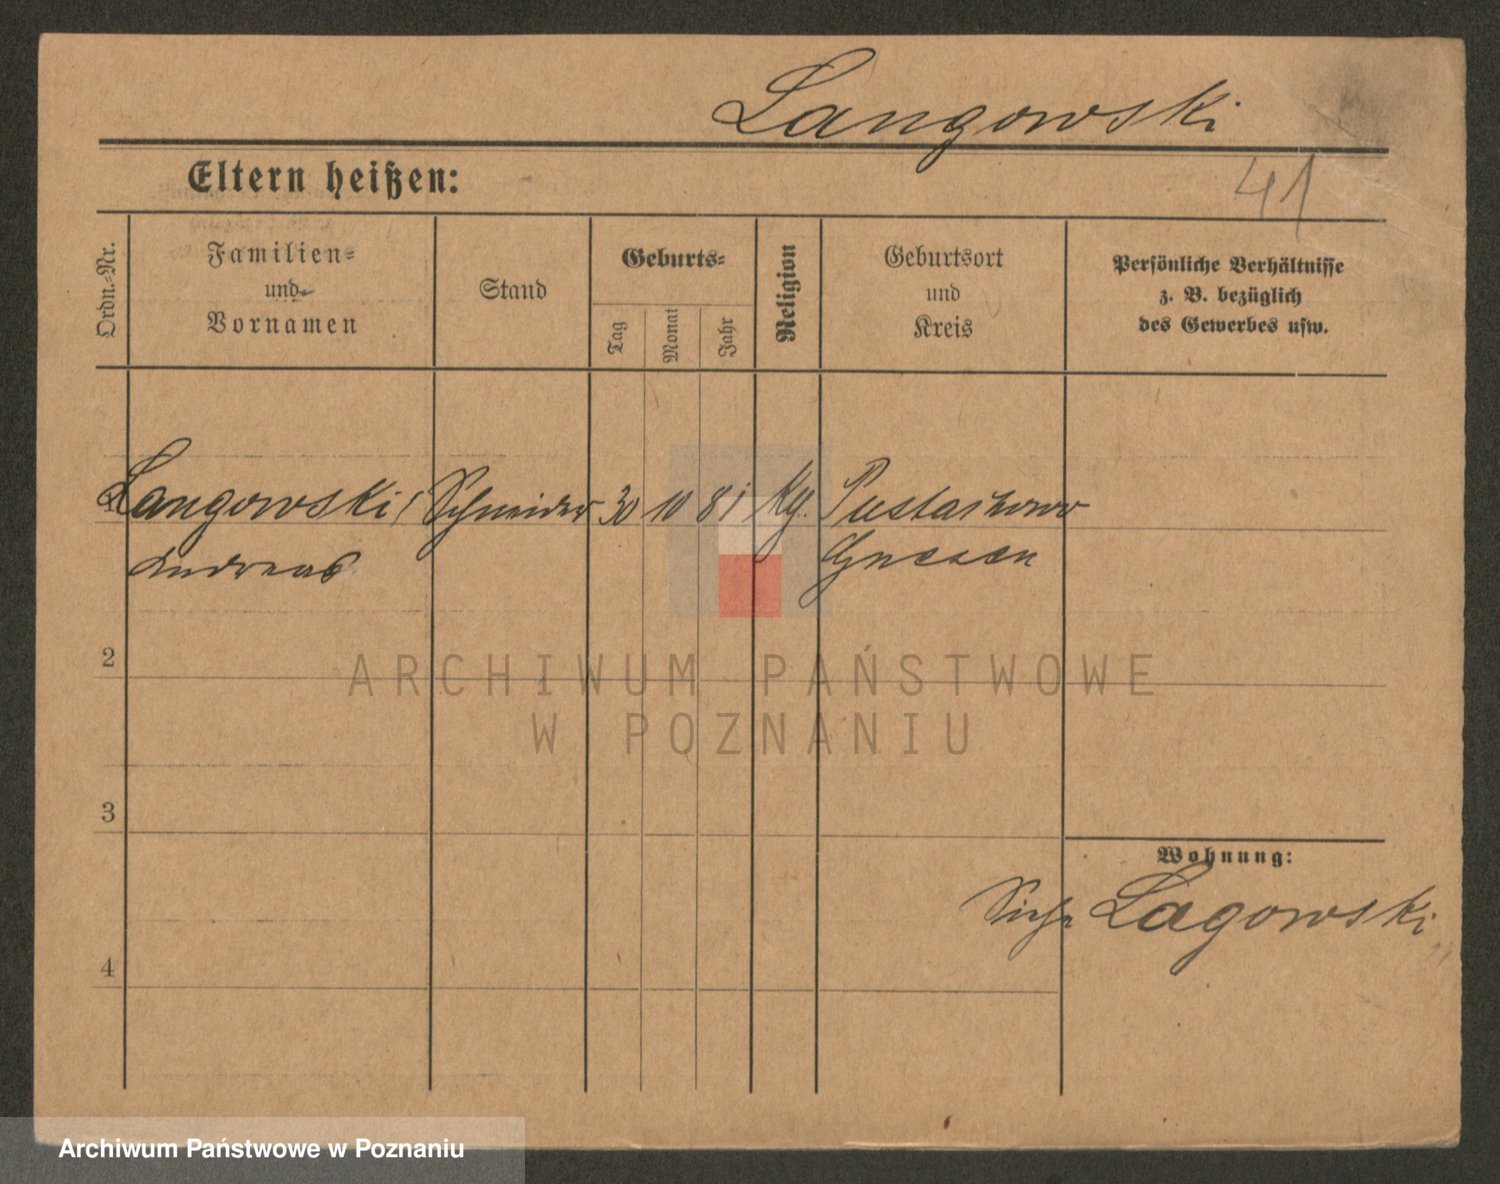 Langowski
41
Eltern heißen:
Ordn.-Nr.
Familien-
und
Vornamen
Stand
Geburts-
Tag
Monat
Jahr
Religion
Geburtsort
und
Kreis
Persönliche Verhältnisse
z. B. bezüglich
des Gewerbes usw.
Langowski Schneider 30 10 81 Pustachowo
Andreas Gnesen
2
ARCHIWUM PAŃSTWOWE
W POZNANIU
3
Wohnung:
Siehe Lagowski
4
Archiwum Państwowe w Poznaniu